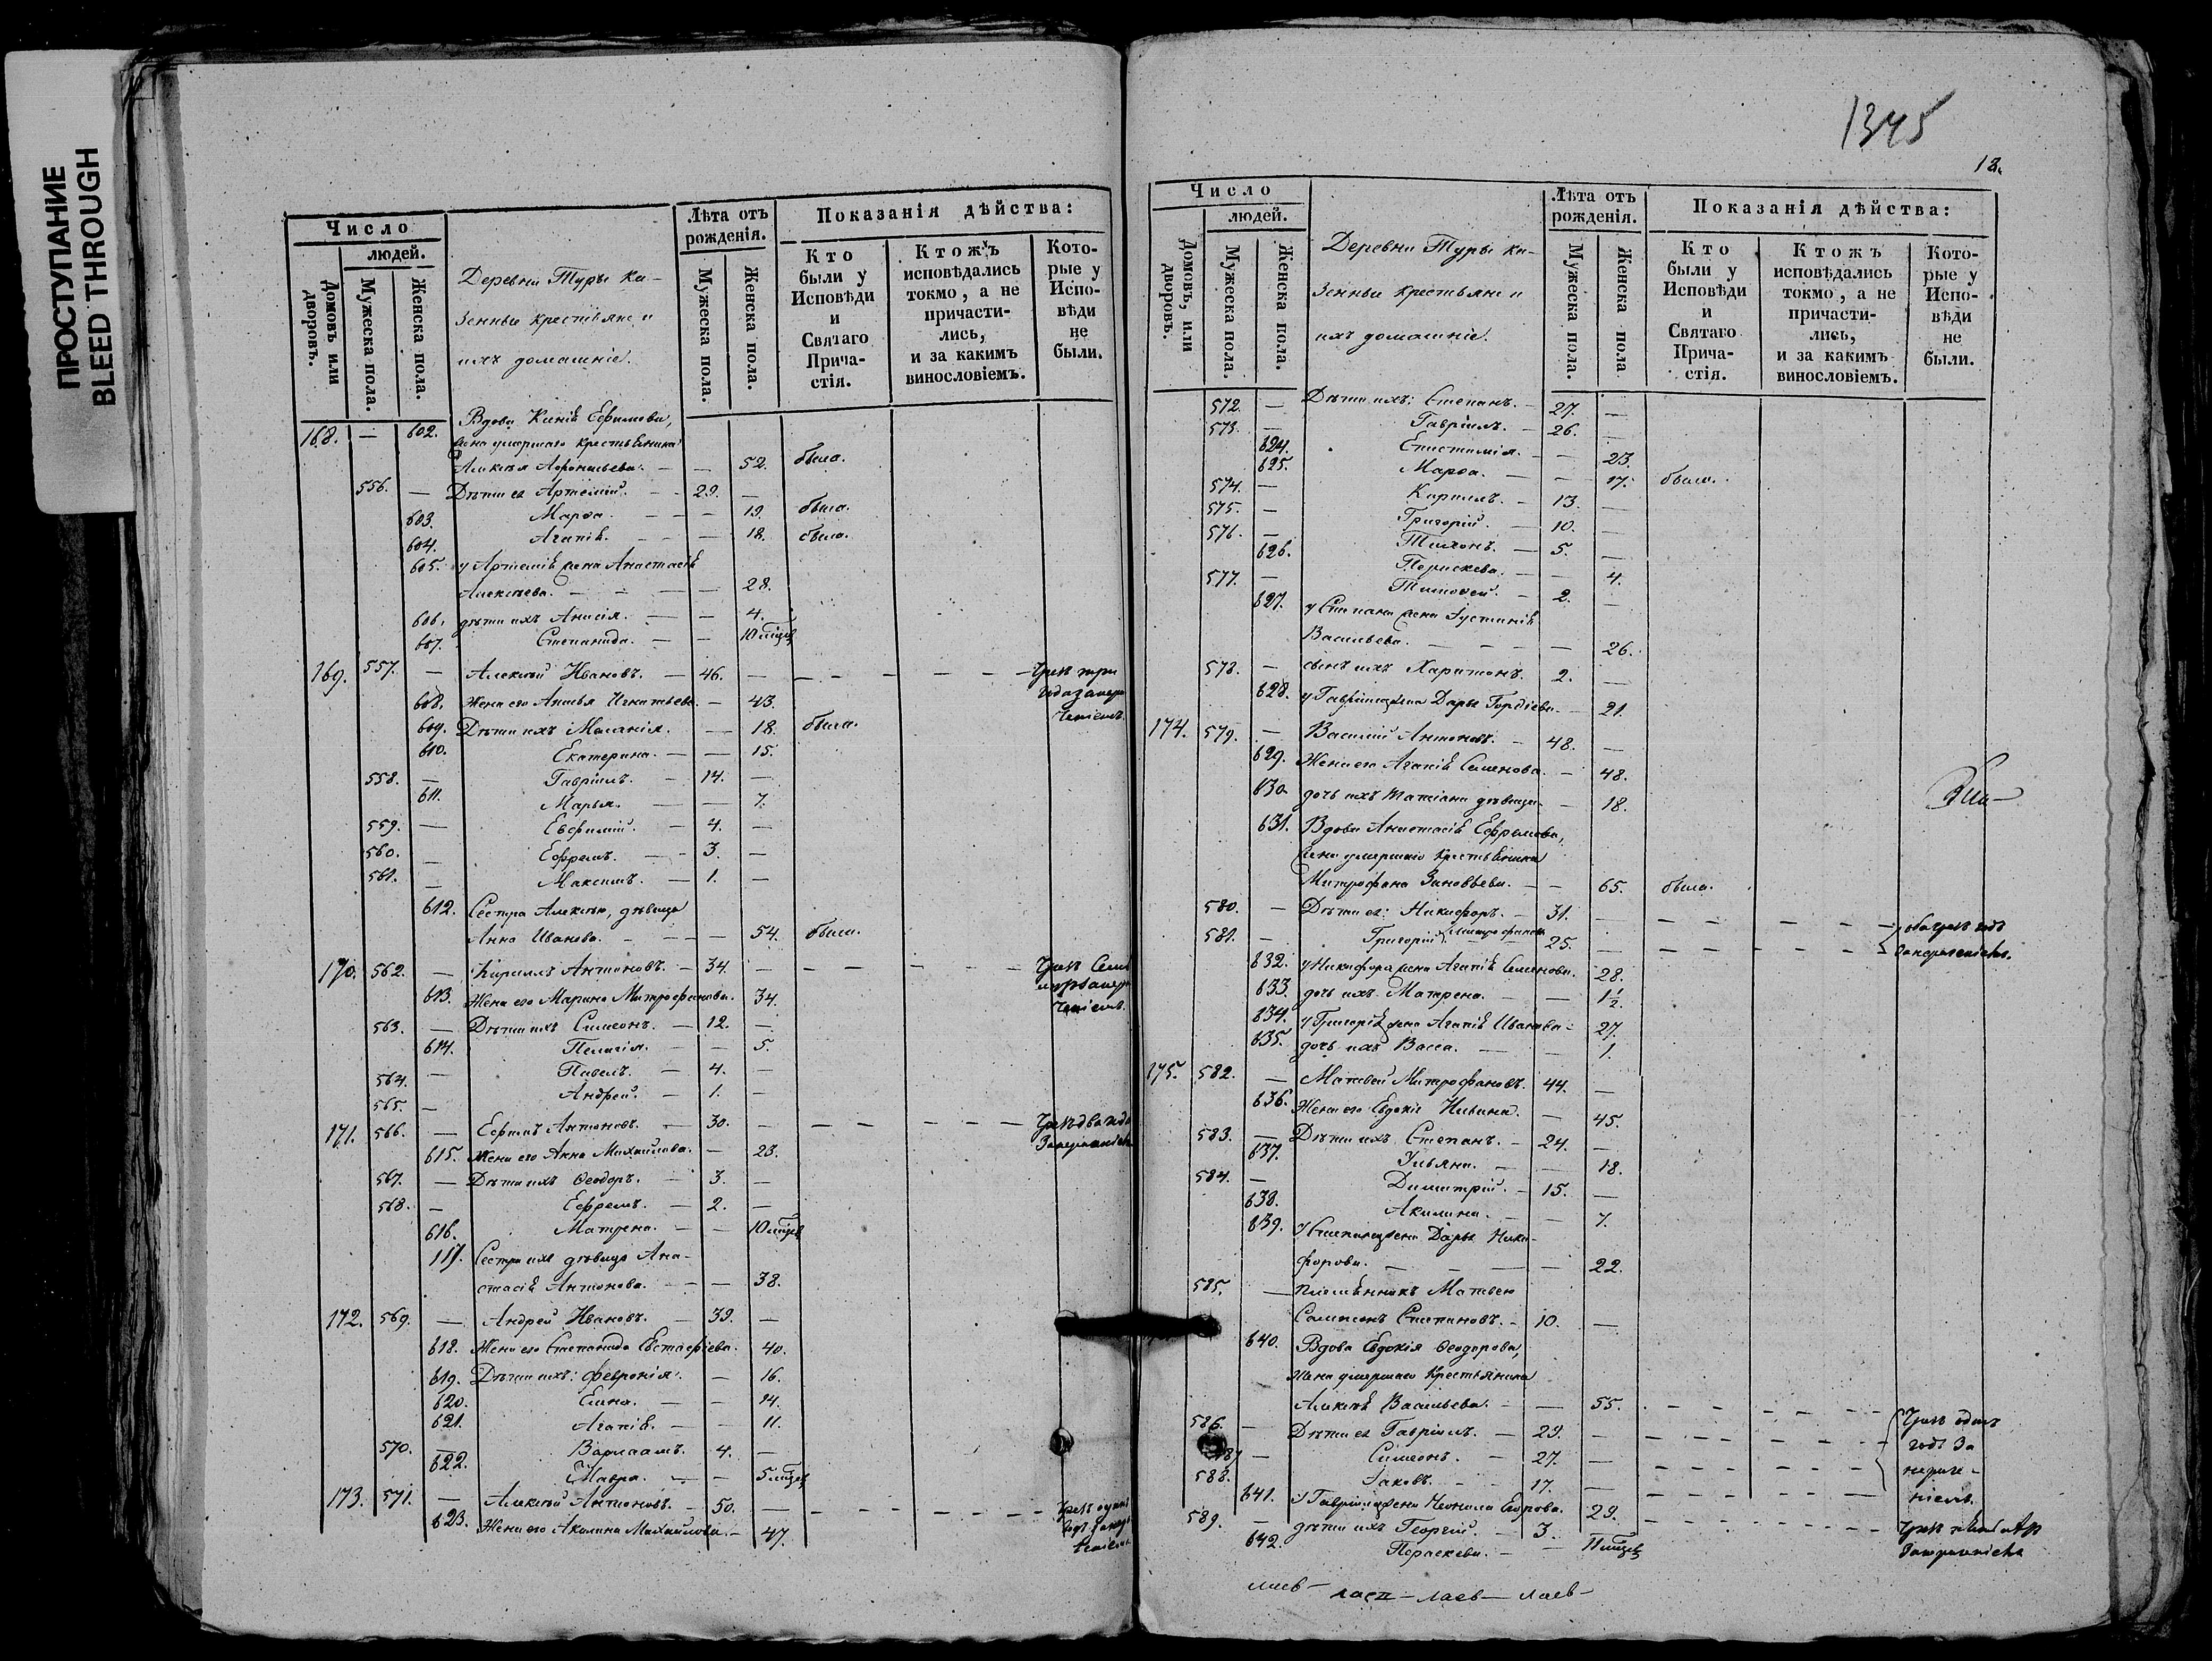 ПРОСТУПАНИЕ
BLEED THROUGH
Число
людей.
Домовъ или дворовъ.
Мужеска пола.
Женска пола.
Деревни Туры ка-
зенные крестьяне и
ихъ домашніе.
Лѣта отъ рожденія.
Мужеска пола.
Женска пола.
Показанія дѣйства:
Кто были у Исповѣди и Святаго Прича-стія.
Ктожъ исповѣдались токмо, а не причасти-лись, и за какимъ винословіемъ.
Кото-рые у Испо-вѣди не были.
168. — 602. Вдова Ефимова,
жена умершаго крестьянина
Алексѣя — — 52. была.
556. — Дѣти ея Артемій. — 29. —
603. Марѳа. — — 19. была.
604. Агапія. — — 18. была.
605. у Артемія жена Анастасія
Алексѣева. — — 28.
606. дѣти ихъ Анисія. — — 4.
607. Степанида. — — 10 мѣсяц
169. 557. — Алексѣй Ивановъ. — 46. — — — — Чрезъ три
года
608. Жена его Игнатьева. — 43.
609. Дѣти ихъ Маланія. — — 18. была.
610. Екатерина. — — 15.
558. — Гавріилъ. — 14. —
611. Марья. — — 7.
559. — Евфимій. — 4. —
560. — Ефремъ. — 3. —
561. — Максимъ. — 1. —
612. Сестра Алексѣю, дѣвица
Анна Иванова. — — 54. была.
170. 562. — Кириллъ Антоновъ. — 34. — — — — Чрезъ семь
613. Жена его Марина Митрофанова. 34.
563. — Дѣти ихъ Симеонъ. — 12. —
614. Пелагія. — — 5.
564. — Павелъ. — 4. —
565. — Андрей. — 1. —
171. 566. — Ефимъ Антоновъ. — 30. — — — — Чрезъ два года
615. Жена его Анна Михайлова. — 23.
567. — Дѣти ихъ Ѳеодоръ. — 3. —
568. — Ефремъ. — 2. —
616. Матрена. — — 10 мѣсяц
117. Сестра ихъ дѣвица Ана-
стасія Антонова. — — 38.
172. 569. — Андрей Ивановъ. — 39. —
618. Жена его Степанида Евстафіева. 40.
619. Дѣти ихъ: Февронія. — 16.
620. Елена. — — 14.
621. Агапія. — — 11.
570. — Варлаамъ. 4. —
622. Мавра. — — 5 мѣсяц
173. 571. — Алексѣй Антоновъ. — 50. — — — — Чрезъ одинъ
годъ
623. Жена его Акилина Михайлова. — 47.
1345
12.
Число
людей.
Домовъ, или дворовъ.
Мужеска пола.
Женска пола.
Деревни Туры ка-
зенные крестьяне и
ихъ домашніе.
Лѣта отъ рожденія.
Мужеска пола.
Женска пола
Показанія дѣйства:
Кто были у Исповѣди и Святаго Прича-стія.
Ктожъ исповѣдались токмо, а не причасти-лись, и за какимъ винословіемъ.
Кото-рые у Испо-вѣди не были.
572. — Дѣти ихъ: Степанъ. — 27. —
573. — Гавріилъ. — 26. —
624. Епистимія. — — 23.
625. Марѳа. — — 17. была.
574. — Кириллъ. — 13. —
575. — Григорій. — 10. —
576. — Тихонъ. — 5. —
626. Параскева. — — 4.
577. — Тимоѳей. — 2. —
627. у Степана жена Іустинія
Васильева. — — 26.
578. — сынъ ихъ Харитонъ. 2. —
628. у Гавріила жена Дарья Гордіева. — 21.
174. 579. — Василій Антоновъ. — 48. —
629. Жена его Агапія Семенова. — 48.
630. дочь ихъ Татіана дѣвица — 18.
631. Вдова Анастасія Ефремова,
жена умершаго крестьянина
Митрофана Зиновьева. — — 65. была.
580. — Дѣти ея: Никифоръ. — 31. — — — — оба чрезъ годъ
581. — Григорій Митрофановы 25. — — — —
632. у Никифора жена Агапія Семенова. 28.
633. дочь ихъ Матрена. — — 1½.
634. у Григорія жена Агапія Иванова — 27.
635. дочь ихъ Васса. — — 1.
175. 582. — Матвей Митрофановъ. 44. —
636. Жена его Евдокія Ильина. — 45.
583. — Дѣти ихъ Степанъ. — 24. —
637. Ульяна. — — 18.
584. — Димитрій. — 15. —
638. Акилина. — — 7.
639. у Степана жена Дарья Ники-
форова. — — — 22.
585. — племянникъ Матвею
Степановъ. — 10. —
640. Вдова Евдокія Ѳеодорова,
жена умершаго крестьянина
Алексѣя Васильева. — — 55. — — — — Чрезъ одинъ
586. — Дѣти ея Гавріилъ. — 29. — — — — годъ за
587 — Симеонъ. — 27. — — — — нераче-
588. Іаковъ. — 17. — — — — ніемъ.
641. У Гавріила жена Неонила Егорова. 29.
589. — дѣти ихъ Георгій. — 3. — — — — Чрезъ
642. Параскева. — — 11 мѣсяц